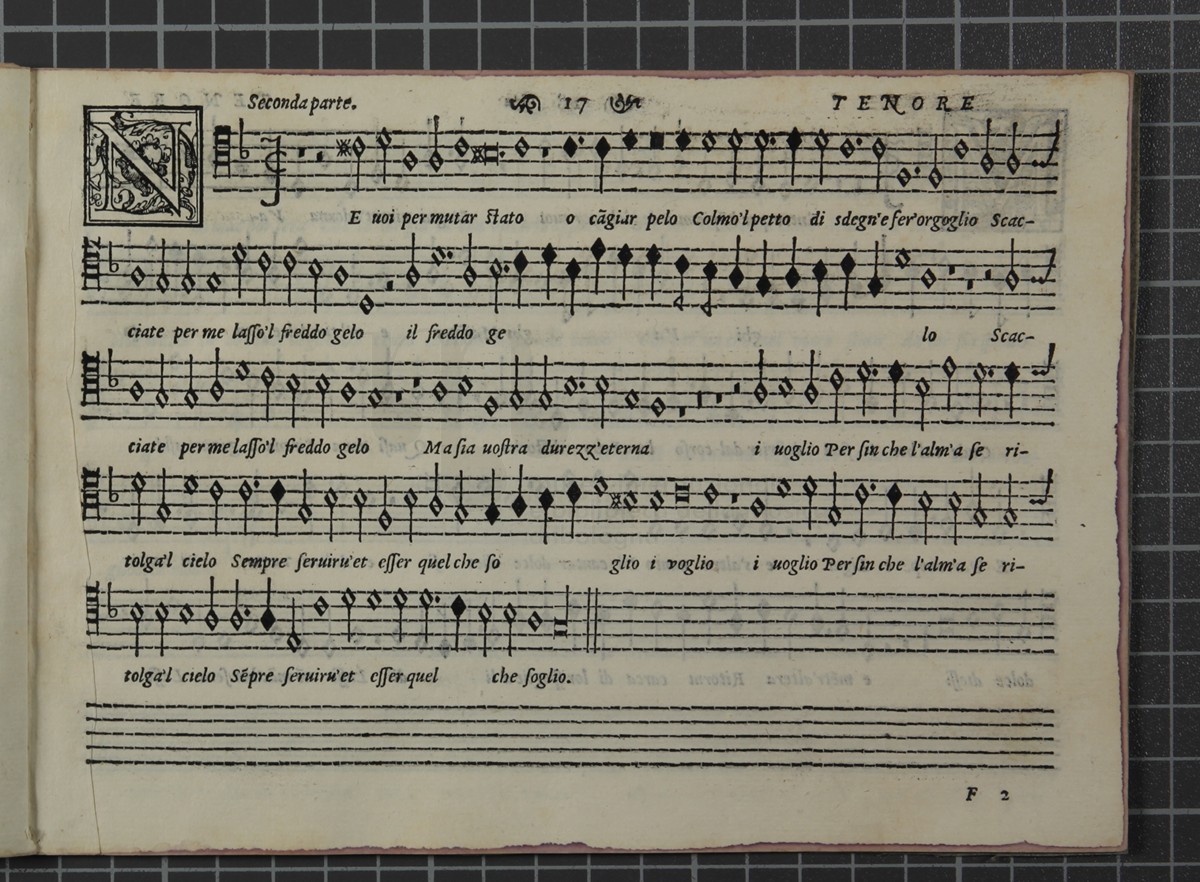 Seconda parte. 17 TENORE
NE uoi per mutar ſtato o cãgiar pelo Colmo'l petto di sdegn'e fer'orgoglio Scac-
ciate per me laſſo'l freddo gelo il freddo ge lo Scac-
ciate per me laſſo'l freddo gelo Ma ſia uoſtra durezz'eterna i uoglio Per ſin che l'alm'a ſe ri-
tolga'l cielo Sempre ſeruiru'et eſſer quel che ſo glio i voglio i uoglio Per ſin che l'alm'a ſe ri-
tolga'l cielo Sẽpre ſeruiru'et eſſer quel che ſoglio.
F 2